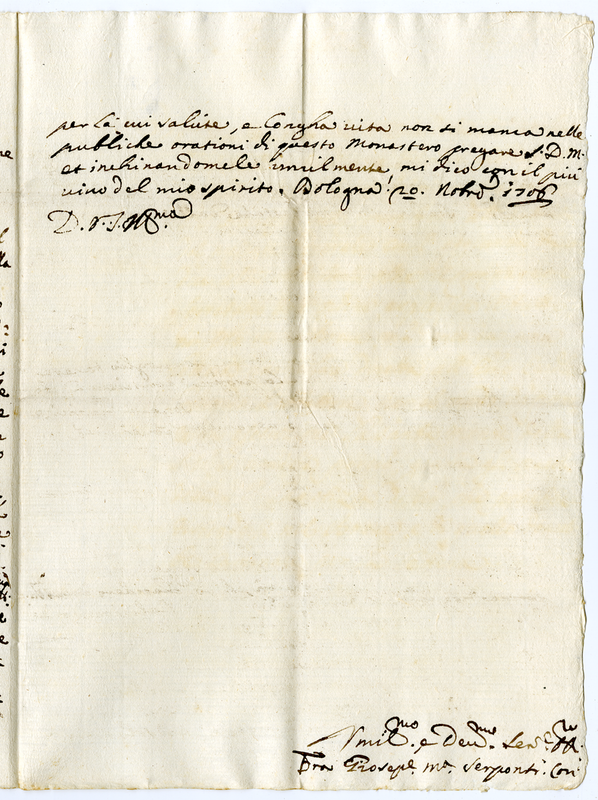 per la cui salute, e longha vita non si manca nelle
publiche orationi di questo Monastero pregare S. D. M.
et inchinandomele umilmente, mi dico con il più
vivo del mio spirito. Bologna 20. Nobre. 1706
D. V. S. Ill.ma
Umil.mo e Deu.mo Ser.e
Fra Giosepe. M.a Serponti